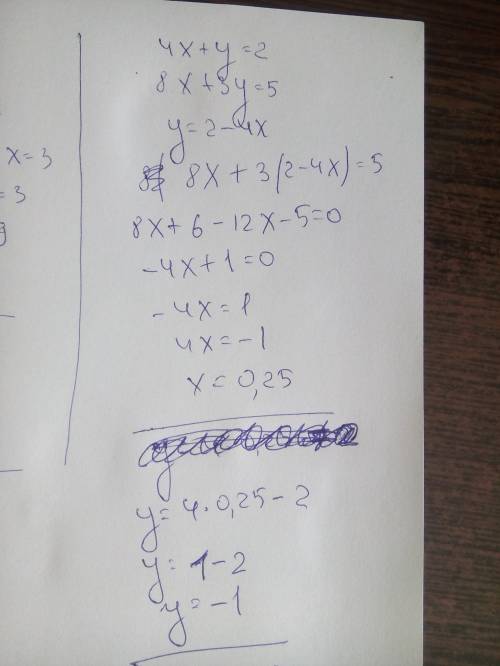 x=3
=3
4x+y=2
8x+3y=5
y=2-4x
8x+3(2-4x)=5
8x+6-12x-5=0
-4x+1=0
-4x=1
4x=-1
x=0,25
y=4·0,25-2
y=1-2
y=-1